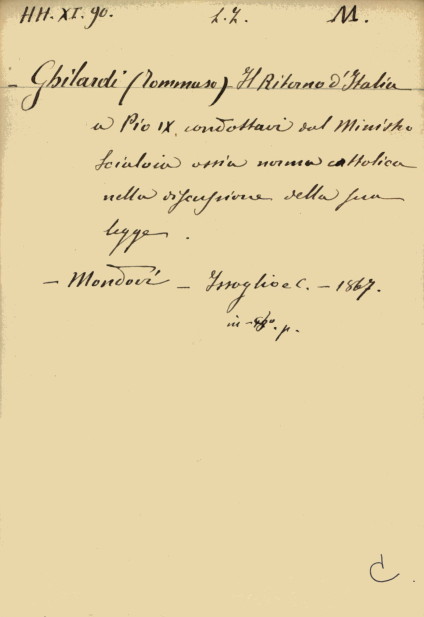 HH. XI. 90. L.Z. M.
- Ghilardi (Tommaso) Il Ritorno d'Italia
a Pio IX, condottavi dal Ministro
Scialoia ossia norma cattolica
nella discussione della sua
legge.
- Mondovì - Issoglio e C. - 1867.
in- p.
C.